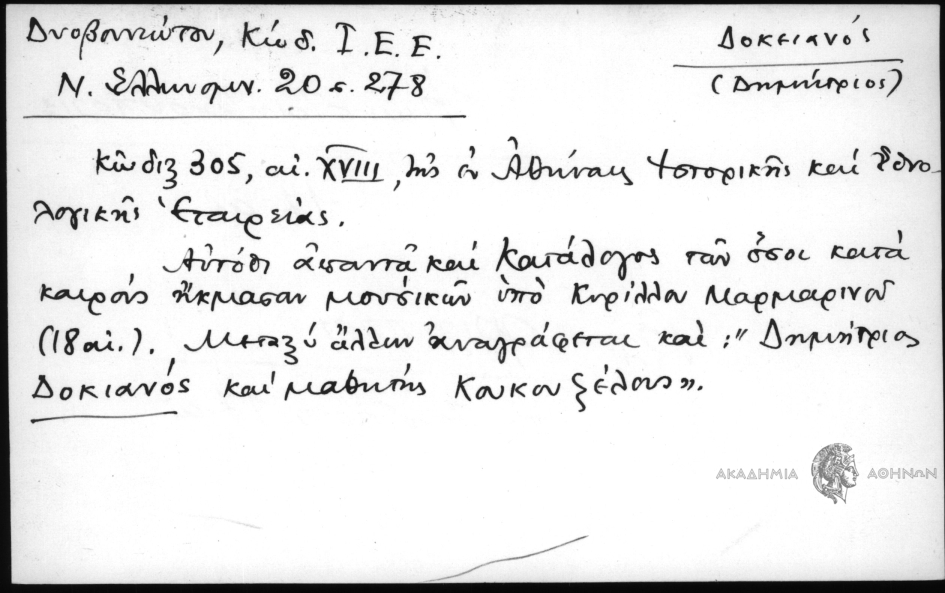 Δυοβουνιώτου, Κώδ. Ι.Ε.Ε.
Ν. Ἑλληνομν. 20 σ. 278
Δοκειανός
(Δημήτριος)
Κῶδιξ 305, αἰ. XVIII, τῆς ἐν Ἀθήναις Ἱστορικῆς καὶ Ἐθνο-
λογικῆς Ἑταιρείας.
Αὐτόθι ἀπαντᾶ καὶ Κατάλογος τῶν ὅσοι κατὰ
καιροὺς ἤκμασαν μουσικῶν ὑπὸ Κυρίλλου Μαρμαρινοῦ
(18 αἰ.). Μεταξὺ ἄλλων ἀναγράφεται καὶ: "Δημήτριος
Δοκιανός καὶ μαθητής Κουκουζέλους".
ΑΚΑΔΗΜΙΑ ΑΘΗΝΩΝ